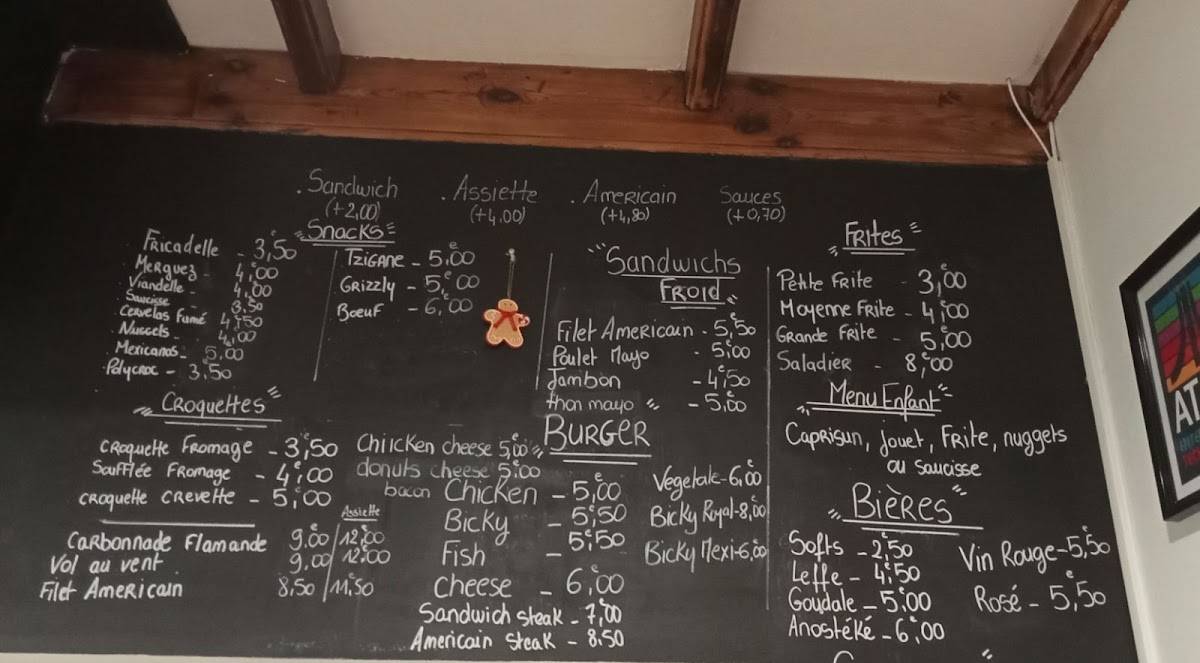 . Sandwich
(+2,00)
. Assiette
(+4,00)
. Americain
(+4,80)
Sauces
(+0,70)
Snacks
Fricadelle - 3,50
Merguez - 4,00
Viandelle - 4,00
Saucisse 3,50
Cervelas Fumé 4,50
Nuggets - 4,00
Mexicanos - 5,00
Polycroc - 3,50
Tzigane - 5,00
Grizzly - 5,00
Bœuf - 6,00
Croquettes
Croquette Fromage - 3,50
Soufflée Fromage - 4,00
Croquette Crevette - 5,00
Assiette
Carbonnade Flamande 9,00 / 12,00
Vol au vent 9,00 / 12,00
Filet Americain 8,50 / 11,50
Sandwichs
Froid
Filet Americain - 5,50
Poulet Mayo - 5,00
Jambon - 4,50
thon mayo - 5,00
Burger
Chilcken cheese 5,00
donuts cheese 5,00
bacon
Chicken - 5,00
Bicky - 5,50
Fish - 5,50
Cheese - 6,00
Sandwich steak - 7,00
Americain steak - 8,50
Vegetale - 6,00
Bicky Royal - 8,00
Bicky Mexi - 6,00
Frites
Petite Frite - 3,00
Moyenne Frite - 4,00
Grande Frite - 5,00
Saladier - 8,00
Menu Enfant
Caprisun, jouet, Frite, nuggets
ou saucisse
Bières
Softs - 2,50
Leffe - 4,50
Goudale - 5,00
Anostéké - 6,00
Vin Rouge - 5,50
Rosé - 5,50